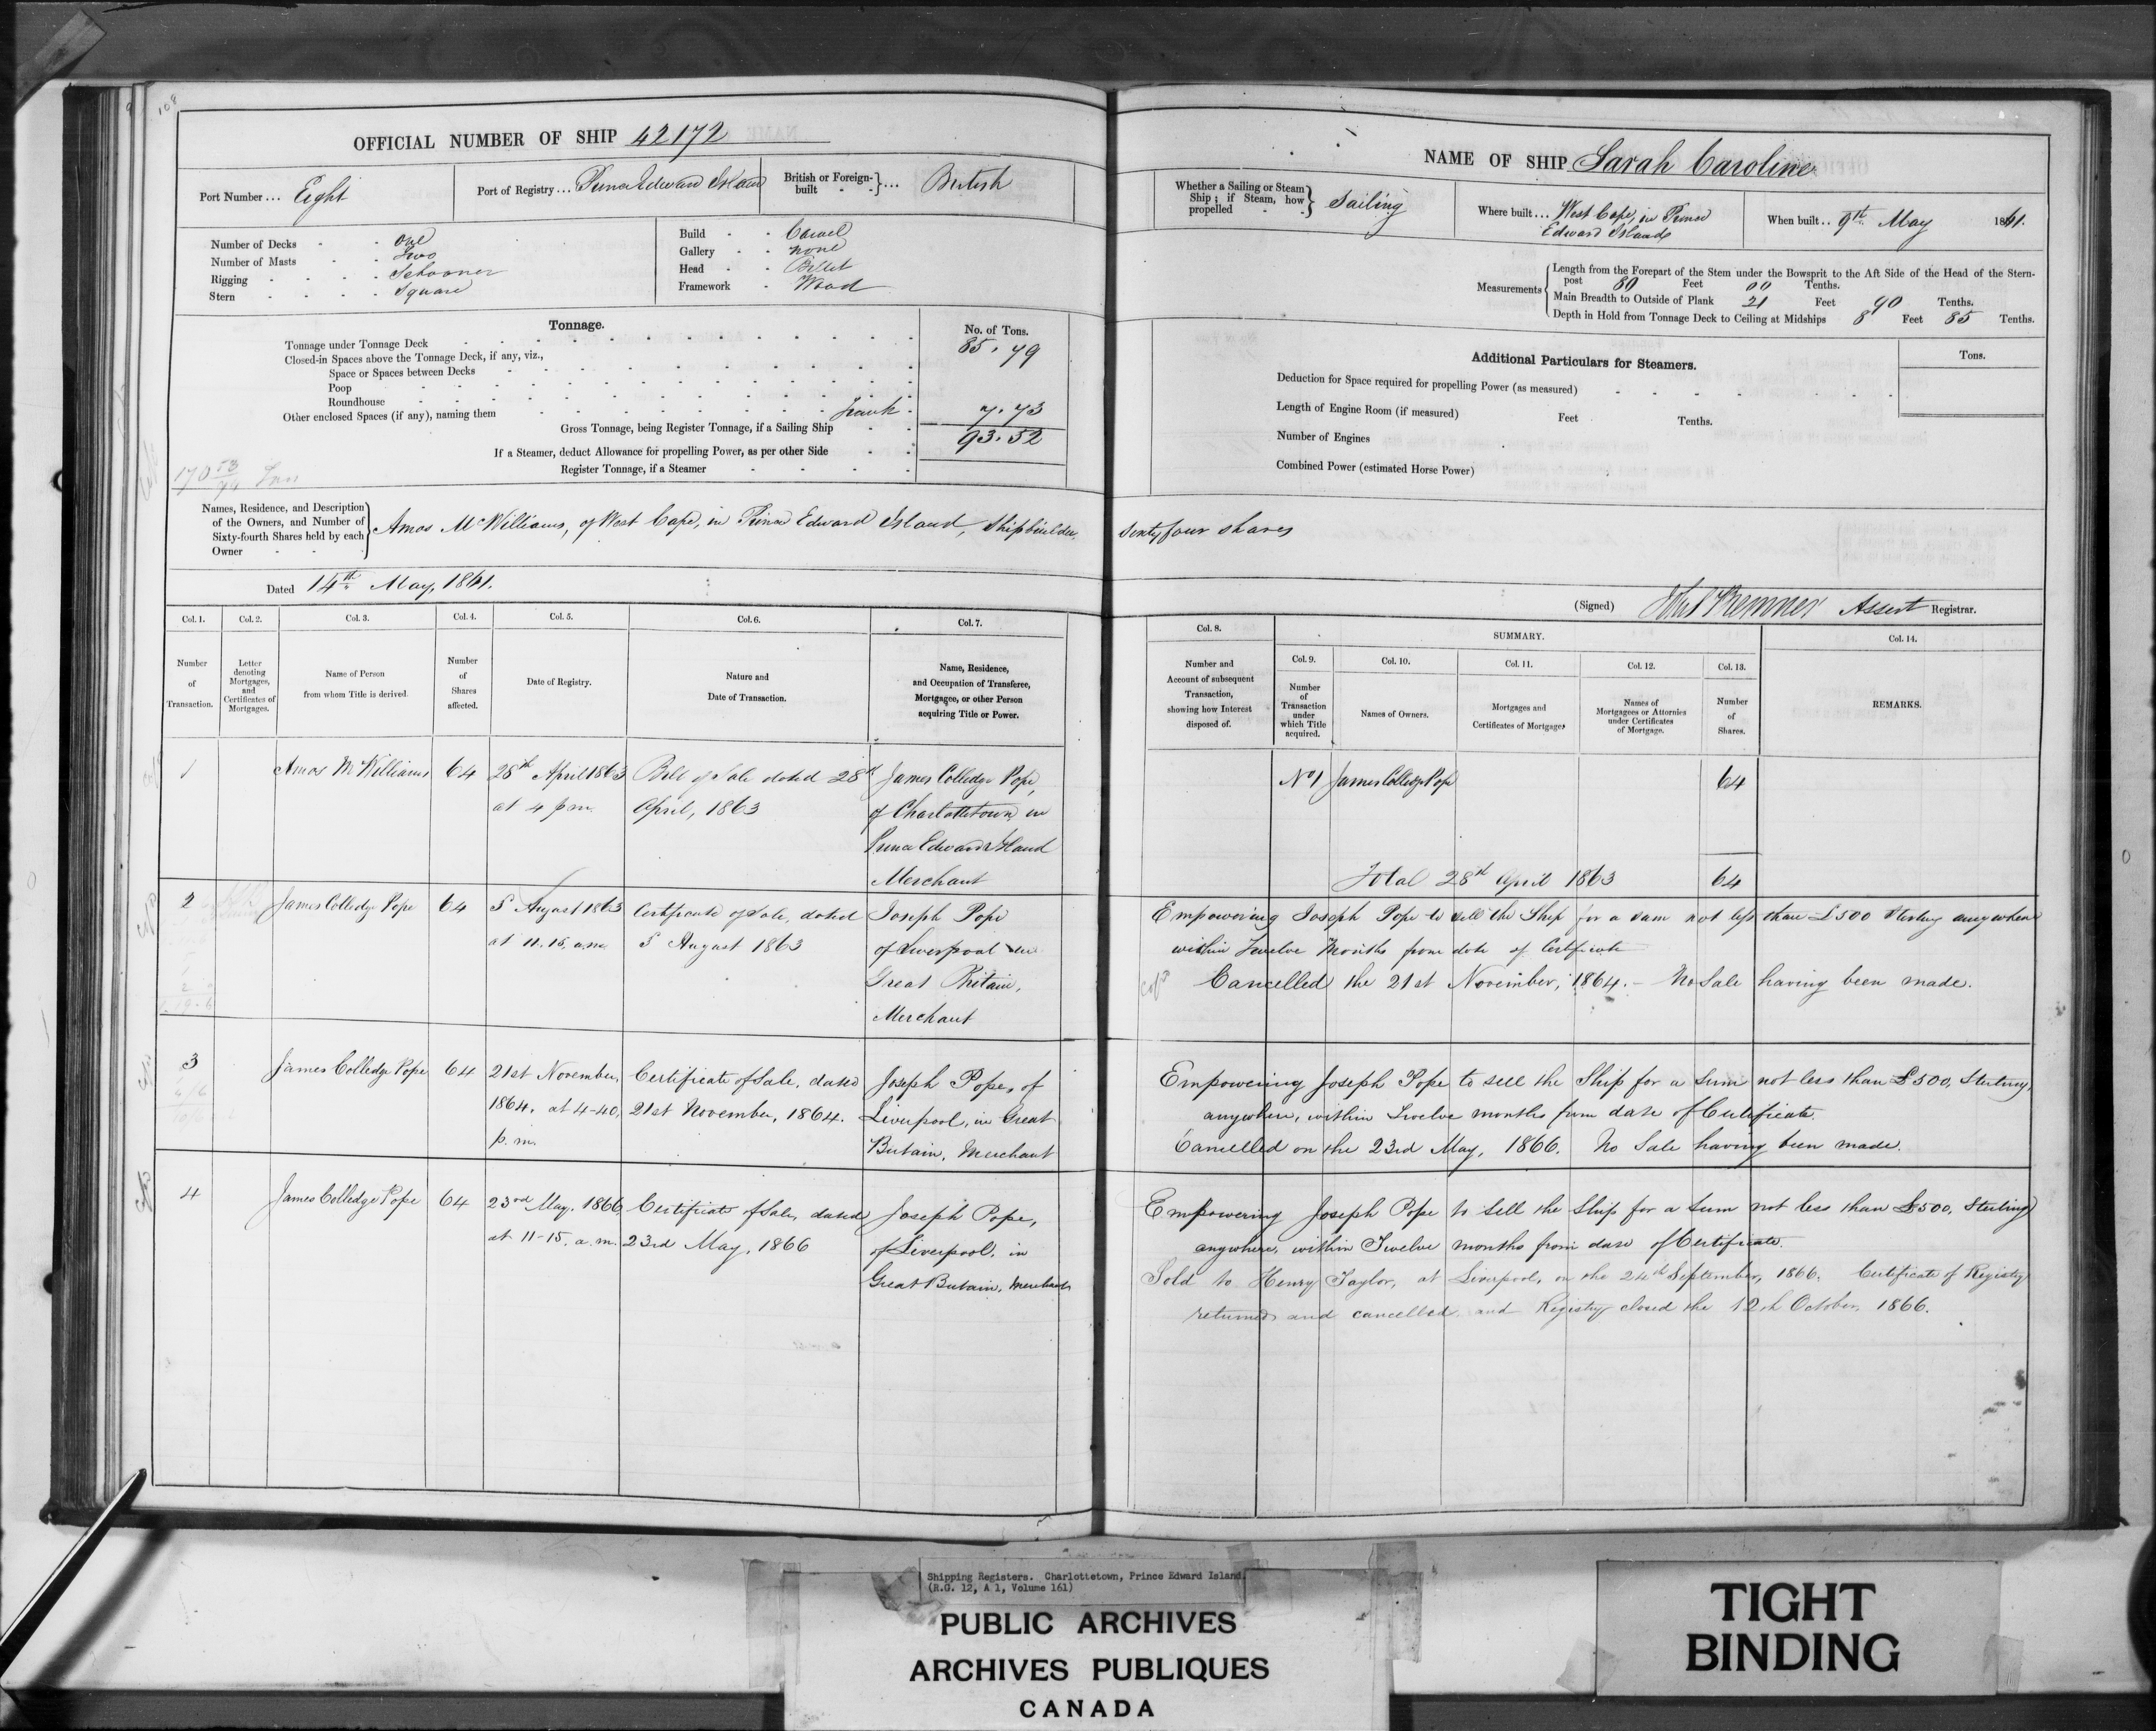 108
OFFICIAL NUMBER OF SHIP 42172
Port Number ... Eight
Port of Registry ... Prince Edward Island
British or Foreign-built } ... British
Number of Decks - - one
Number of Masts - - Two
Rigging - - - - Schooner
Stern - - - - Square
Build - - Carvel
Gallery - - none
Head - - Billet
Framework - Wood
Tonnage.
No. of Tons.
Tonnage under Tonnage Deck 85.79
Closed-in Spaces above the Tonnage Deck, if any, viz.,
Space or Spaces between Decks
Poop
Roundhouse
Other enclosed Spaces (if any), naming them 7.73
Gross Tonnage, being Register Tonnage, if a Sailing Ship 93.52
If a Steamer, deduct Allowance for propelling Power, as per other Side
Register Tonnage, if a Steamer
Names, Residence, and Description of the Owners, and Number of Sixty-fourth Shares held by each Owner } Amos McWilliams, of West Cape, in Prince Edward Island, Shipbuilder,
Dated 14th May, 1861.
Col. 1. Col. 2. Col. 3. Col. 4. Col. 5. Col. 6. Col. 7.
Number of Transaction.
Letter denoting Mortgages, and Certificates of Mortgages.
Name of Person from whom Title is derived.
Number of Shares affected.
Date of Registry.
Nature and Date of Transaction.
Name, Residence, and Occupation of Transferee, Mortgagee, or other Person acquiring Title or Power.
1 Amos McWilliams 64 28th April 1863 Bill of Sale dated 28th James Colledge Pope,
at 4 p.m. April, 1863 of Charlottetown in
Prince Edward Island
Merchant
2 James Colledge Pope 64 5 August 1863 Certificate of Sale, dated Joseph Pope
at 11.15, a.m. 5 August 1863 of Liverpool in
Great Britain,
Merchant
3 James Colledge Pope 64 21st November, Certificate of Sale, dated Joseph Pope, of
1864, at 4-40, 21st November, 1864. Liverpool, in Great
p.m. Britain, Merchant
4 James Colledge Pope 64 23rd May, 1866 Certificate of Sale, dated Joseph Pope,
at 11-15, a.m. 23rd May, 1866 of Liverpool, in
Great Britain, Merchant
NAME OF SHIP Sarah Caroline
Whether a Sailing or Steam Ship; if Steam, how propelled } Sailing
Where built ... West Cape, in Prince
Edward Island
When built .. 9th May 1861.
Measurements { Length from the Forepart of the Stem under the Bowsprit to the Aft Side of the Head of the Stern-
post 80 Feet 00 Tenths.
Main Breadth to Outside of Plank 21 Feet 90 Tenths.
Depth in Hold from Tonnage Deck to Ceiling at Midships 8 Feet 85 Tenths.
Additional Particulars for Steamers.
Tons.
Deduction for Space required for propelling Power (as measured)
Length of Engine Room (if measured) Feet Tenths.
Number of Engines
Combined Power (estimated Horse Power)
Sixty four shares
(Signed) Assist Registrar.
Col. 8. SUMMARY. Col. 14.
Col. 9. Col. 10. Col. 11. Col. 12. Col. 13.
Number and Account of subsequent Transaction, showing how Interest disposed of.
Number of Transaction under which Title acquired.
Names of Owners.
Mortgages and Certificates of Mortgages
Names of Mortgagees or Attornies under Certificates of Mortgage.
Number of Shares.
REMARKS.
No 1 James Colledge Pope 64
Total 28th April 1863 64
Empowering Joseph Pope to sell the Ship for a sum not less than £500 Sterling anywhere
within Twelve Months from date of Certificate
Cancelled the 21st November, 1864. - No Sale having been made.
Empowering Joseph Pope to sell the Ship for a Sum not less than £500, Sterling,
anywhere, within Twelve months from date of Certificate.
Cancelled on the 23rd May, 1866. No Sale having been made.
Empowering Joseph Pope to sell the Ship for a Sum not less than £500, Sterling
anywhere, within Twelve months from date of Certificate.
Sold to Henry Taylor, at Liverpool, on the 24th September, 1866. Certificate of Registry
returned and cancelled and Registry closed the 12th October, 1866.
Shipping Registers. Charlottetown, Prince Edward Island.
(R.G. 12, A 1, Volume 161)
PUBLIC ARCHIVES
ARCHIVES PUBLIQUES
CANADA
TIGHT
BINDING